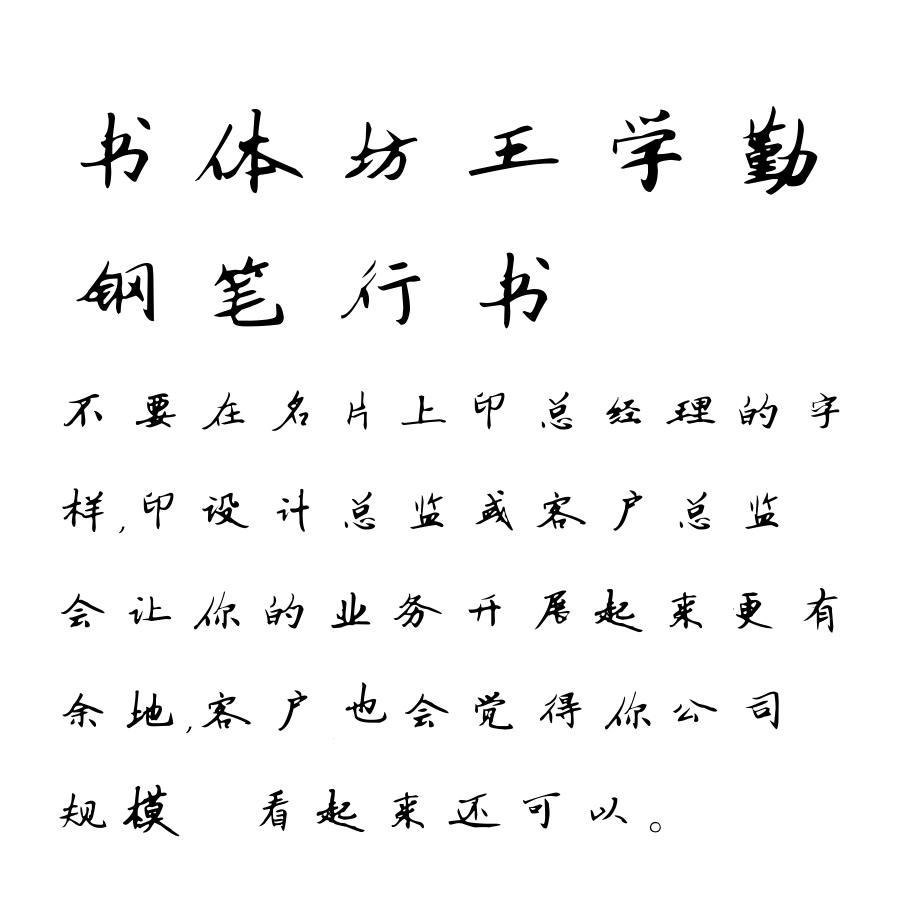 书体坊王学勤
钢笔行书
不要在名片上印总经理的字
样,印设计总监或客户总监
会让你的业务开展起来更有
余地,客户也会觉得你公司
规模 看起来还可以。